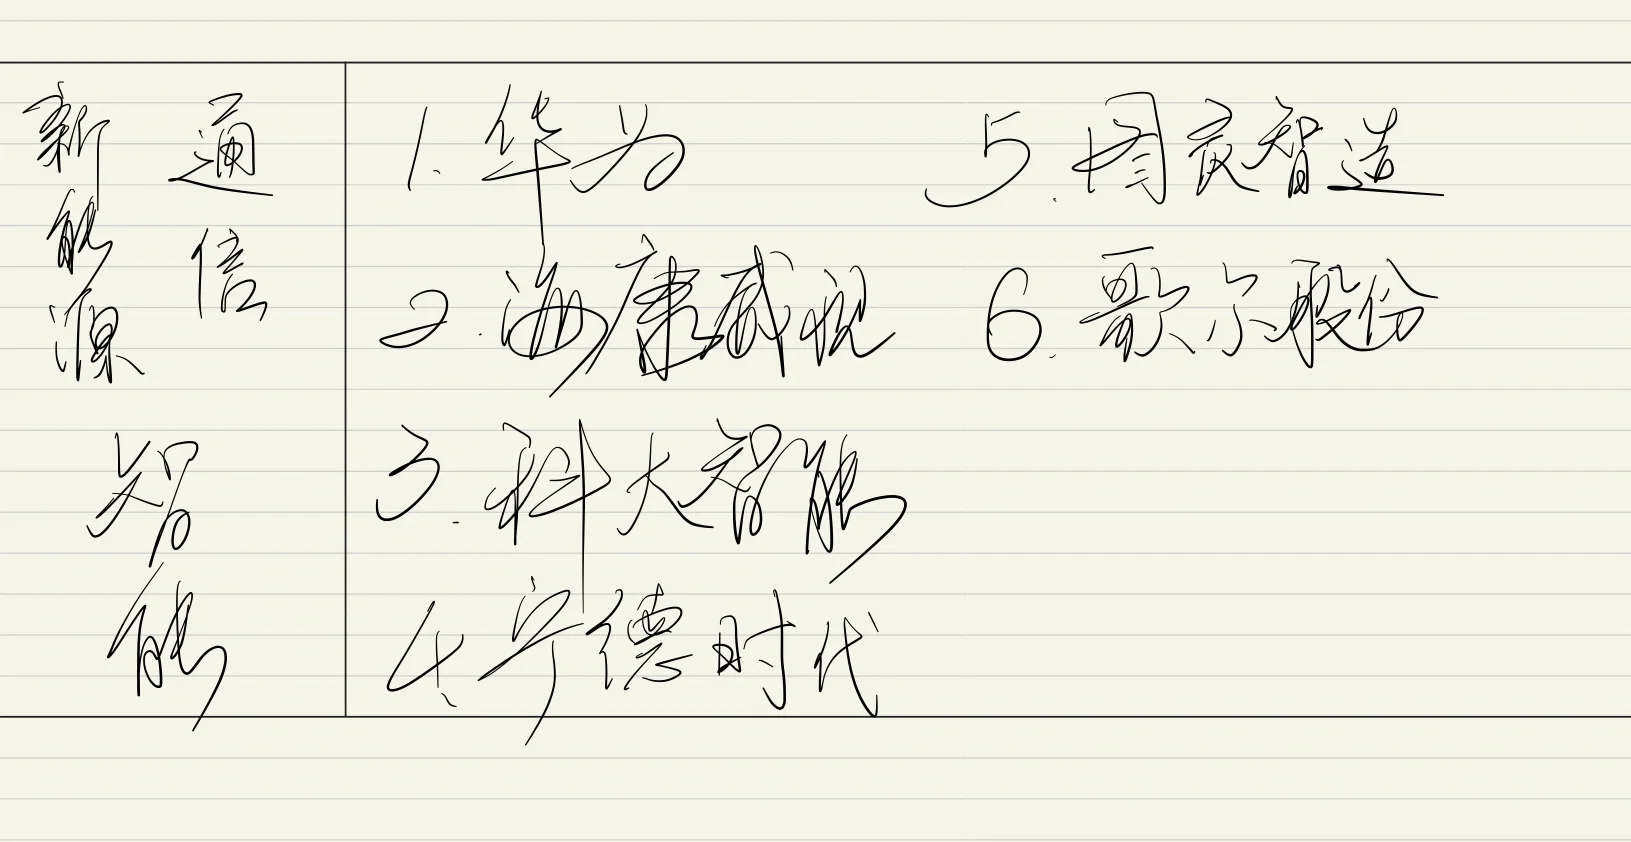 新能源
通信
智能
1. 华为
2. 海康威视
3. 科大智能
4. 宁德时代
5. 智造
6. 歌尔股份